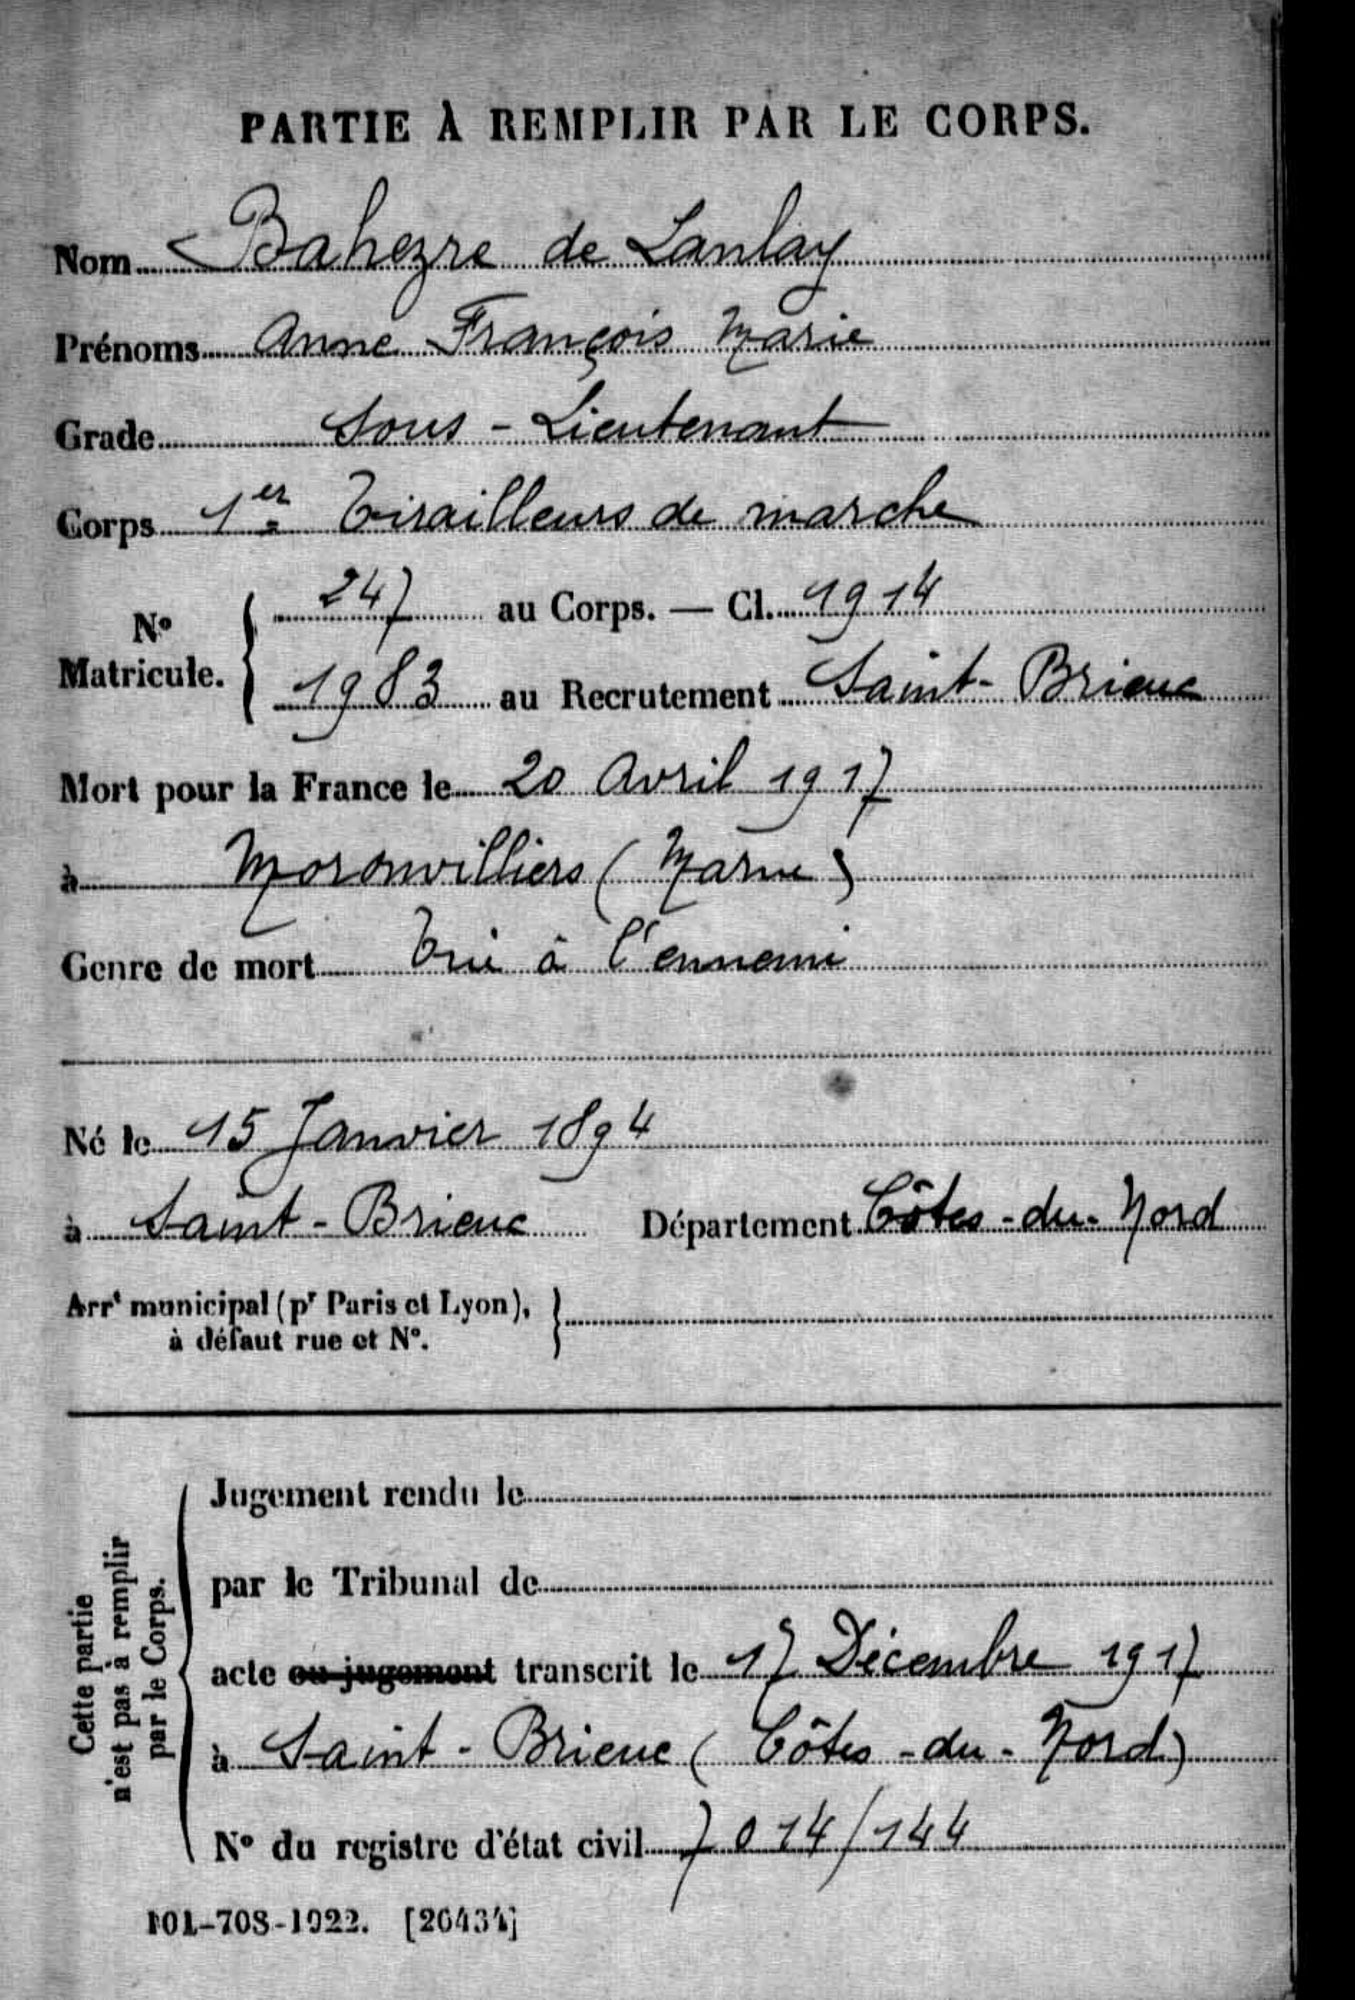 PARTIE À REMPLIR PAR LE CORPS.
Nom Bahezre de Lanlay
Prénoms Anne François Marie
Grade Sous-Lieutenant
Corps 1er Tirailleurs de marche
N° Matricule. 247 au Corps. — Cl. 1914
1983 au Recrutement Saint-Brieuc
Mort pour la France le 20 Avril 1917
à Moronvilliers (Marne)
Genre de mort Tué à l'ennemi
Né le 15 Janvier 1894
à Saint-Brieuc Département Côtes-du-Nord
Arrt municipal (pr Paris et Lyon),
à défaut rue et N°.
Cette partie
n'est pas à remplir
par le Corps.
Jugement rendu le
par le Tribunal de
acte ou jugement transcrit le 17 Décembre 1917
à Saint-Brieuc (Côtes-du-Nord)
N° du registre d'état civil 7014/144
101-708-1922. [26434]